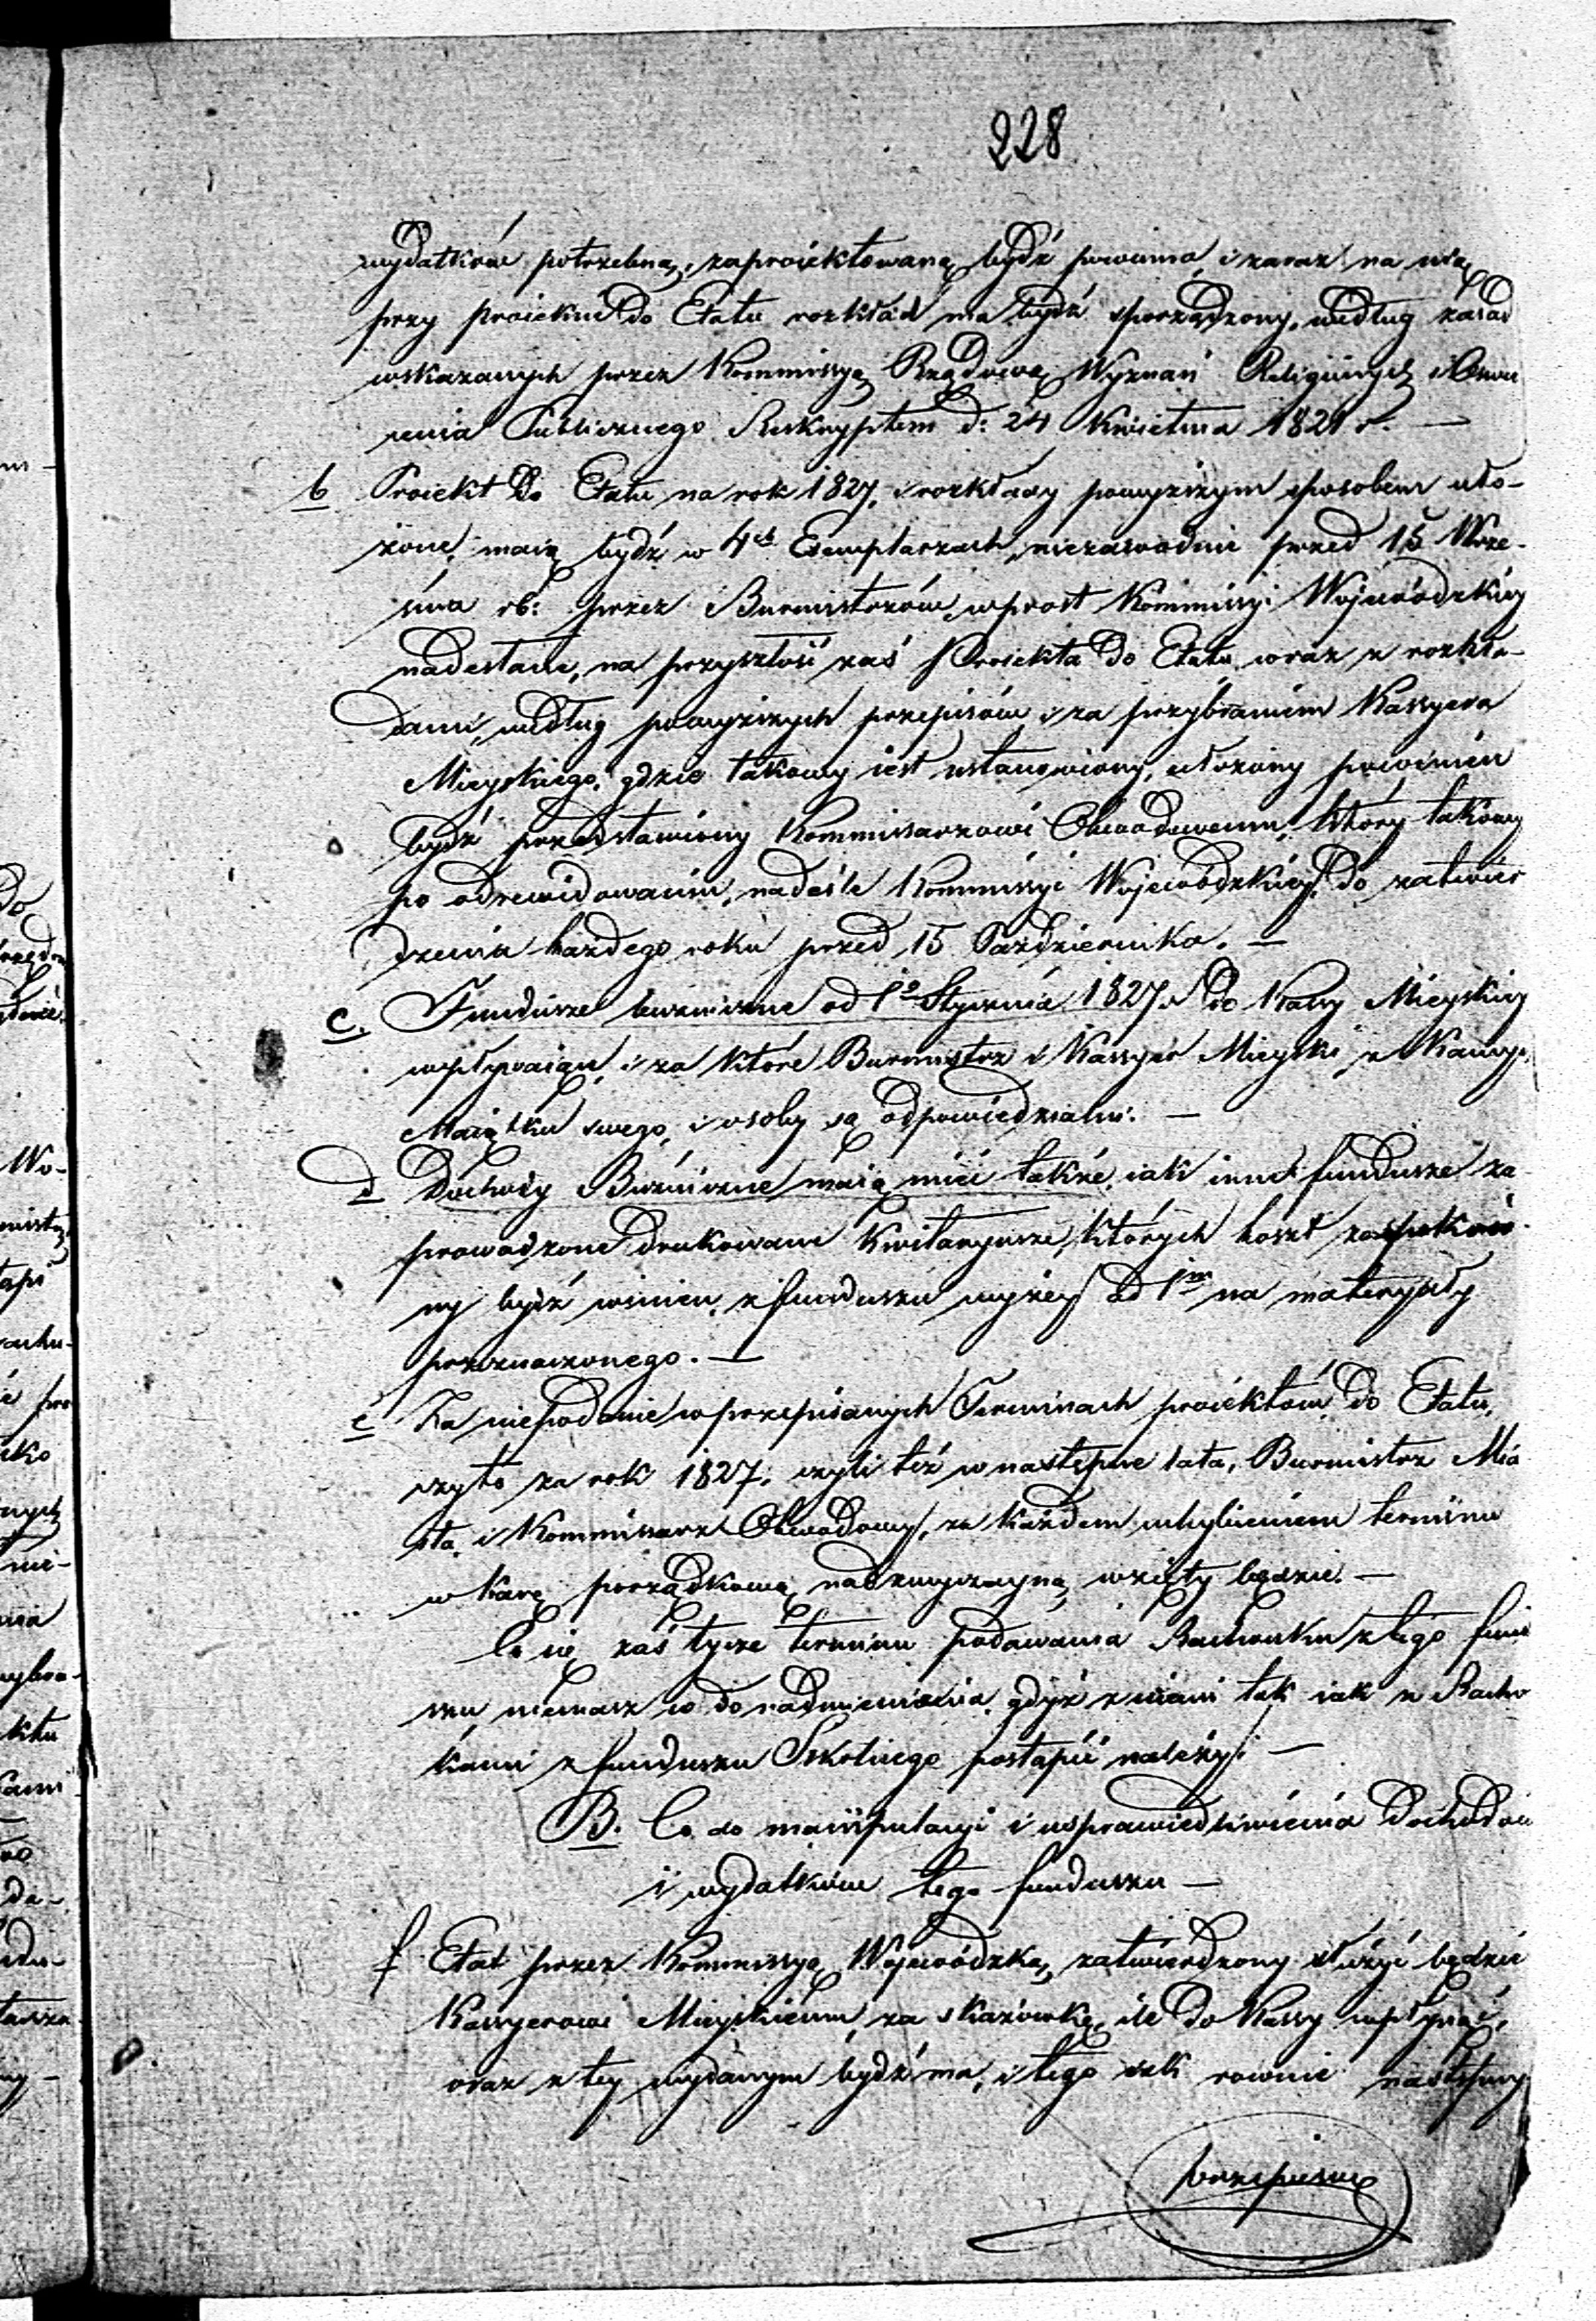 228
wydatków potrzebna, zaproiektowaną bydź powinna i zaraz na nią
przy proiekcie do Etatu rozkład ma bydź sporządzony, według zasad
wskazanych przez Kommissyą Rządową Wyznań Religiinych i Oświe
cenia Publicznego Reskryptem d: 24 Kwietnia 1821 r. —
b Proiekt do Etatu na rok 1827, i rozkłady powyższym sposobem uło-
żone, maią bydź w 4ch Exemplarzach, niezawodnie przed 15 Wrze-
śnia rb: przez Burmistrzów wprost Kommissyi Wojewódzkiey
nadesłane, na przyszłość zaś Proiekta do Etatu, wraz z rozkła-
dami, według powyższych przepisów i za przybraniem Kassyera
Mieyskiego, gdzie takowy iest ustanowiony, ułożony powinien
bydź przedstawiony Kommissarzowi Obwodowemu, który takowy
po odrewidowaniu, nadeśle Kommissyi Wojewódzkiey, do zatwier
dzenia każdego roku przed 15 Października. —
c. Fundusze bużniczne od 1o Stycznia 1827 r do Kassy Mieyskiey
wpływaiąc, i za które Burmistrz i Kassyer Mieyski z Kaucyi,
Maiątku swego, i osoby są odpowiedzialni. —
d Dochody Bużniczne maią mieć także, iak inne fundusze za
prowadzone drukowane Kwitaryusze, których koszt zaspokoio-
ny bydź winien, z funduszu wyżey ad 1m na materyały
przeznaczonego. —
e Za niepodanie w przepisanych Terminach proiektów do Etatu,
czyto za rok 1827, czyli też w następne lata, Burmistrz Mia
sta, i Kommissarz Obwodowy, za każdem uchybieniem terminu
w karę porządkową nadzwyczayną wzięty będzie. —
Co się zaś tycze terminu podawania Rachunku z tego fundu
szu, niemasz co do nadmienienia, gdyż z niemi tak iak z Rachun
kami z funduszu Szkolnego postąpić należy. —
B. Co do manipulacyi i usprawiedliwienia Dochodów
i wydatków tego funduszu —
f Etat przez Kommissyą Wojewódzką, zatwierdzony służyć będzie
Kassyerowi Mieyskiemu, za skazówkę, ile do Kassy wpłynąć,
oraz z tey wydanym bydź ma, i tego ... równie następny
przepisuie